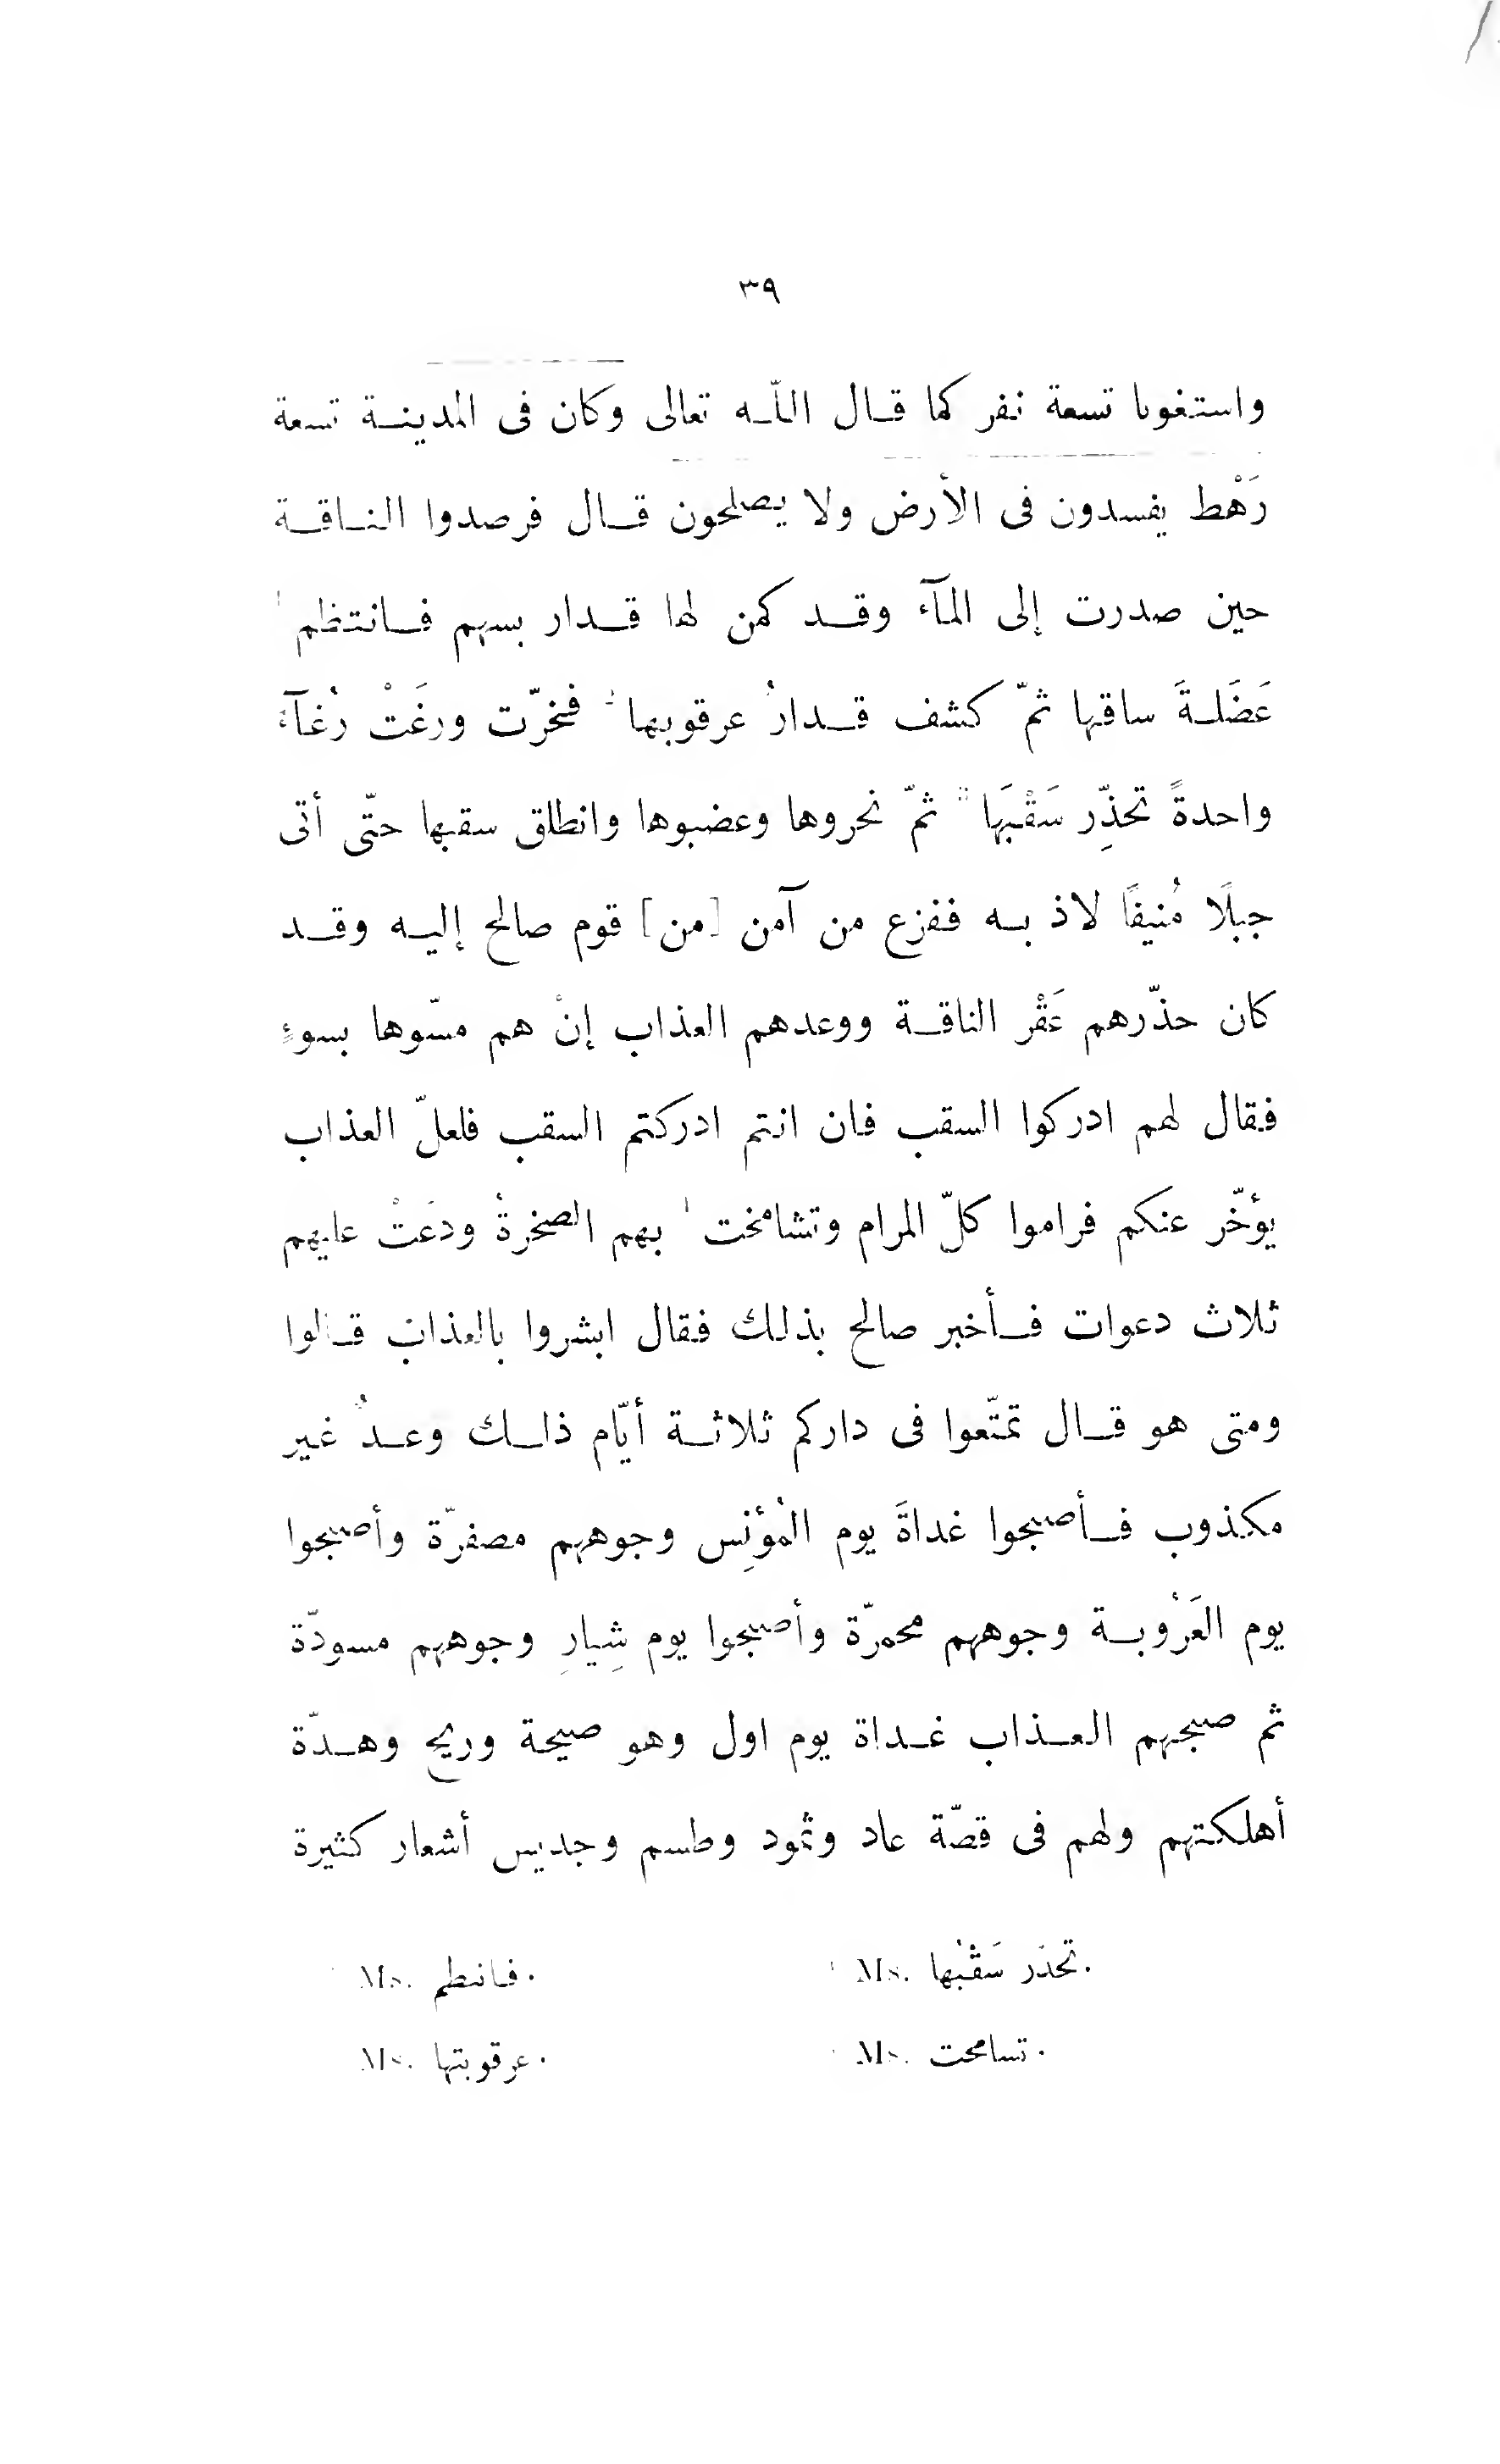 ٣٩
واستغويا تسعة نفر كما قال اللّه تعالى وكان فى المدينة تسعة
رَهْط يفسدون فى الأرض ولا يصلحون قال فرصدوا الناقة
حين صدرت إلى المآء وقد كمن لها قدار بسهم فانتظم
عَضَلةَ ساقها ثمّ كشف قدارُ عرقوبها فخرّت ورغَتْ رُغآءً
واحدةً تحذِّر سَقْبَهَا ثمّ نحروها وعضبوها وانطلق سقبها حتّى أتى
جبلًا مُنيفًا لاذ به ففزع من آمن [من] قوم صالح إليه وقد
كان حذّرهم عَقْر الناقة ووعدهم العذاب إنْ هم مسّوها بسوءٍ
فقال لهم ادركوا السقب فان انتم ادركتم السقب فلعلّ العذاب
يؤخّر عنكم فراموا كلّ المرام وتشامخت بهم الصخرةُ ودعَتْ عليهم
ثلاث دعوات فأخبر صالح بذلك فقال ابشروا بالعذاب قالوا
ومتى هو قال تمتّعوا فى داركم ثلاثة أيّام ذلك وعدٌ غير
مكذوب فأصبحوا غداةَ يوم المُؤنِس وجوههم مصفرّة وأصبحوا
يوم العَرُوبة وجوههم محمرّة وأصبحوا يوم شِيارِ وجوههم مسودّة
ثم صبحهم العذاب غداة يوم اول وهو صيحة وريح وهدّة
أهلكتهم ولهم فى قصّة عاد وثمود وطسم وجديس أشعار كثيرة
Ms. فانىطم.
Ms. تحذر سَقْبُها.
Ms. عرقوبتها.
Ms. تسامحت.